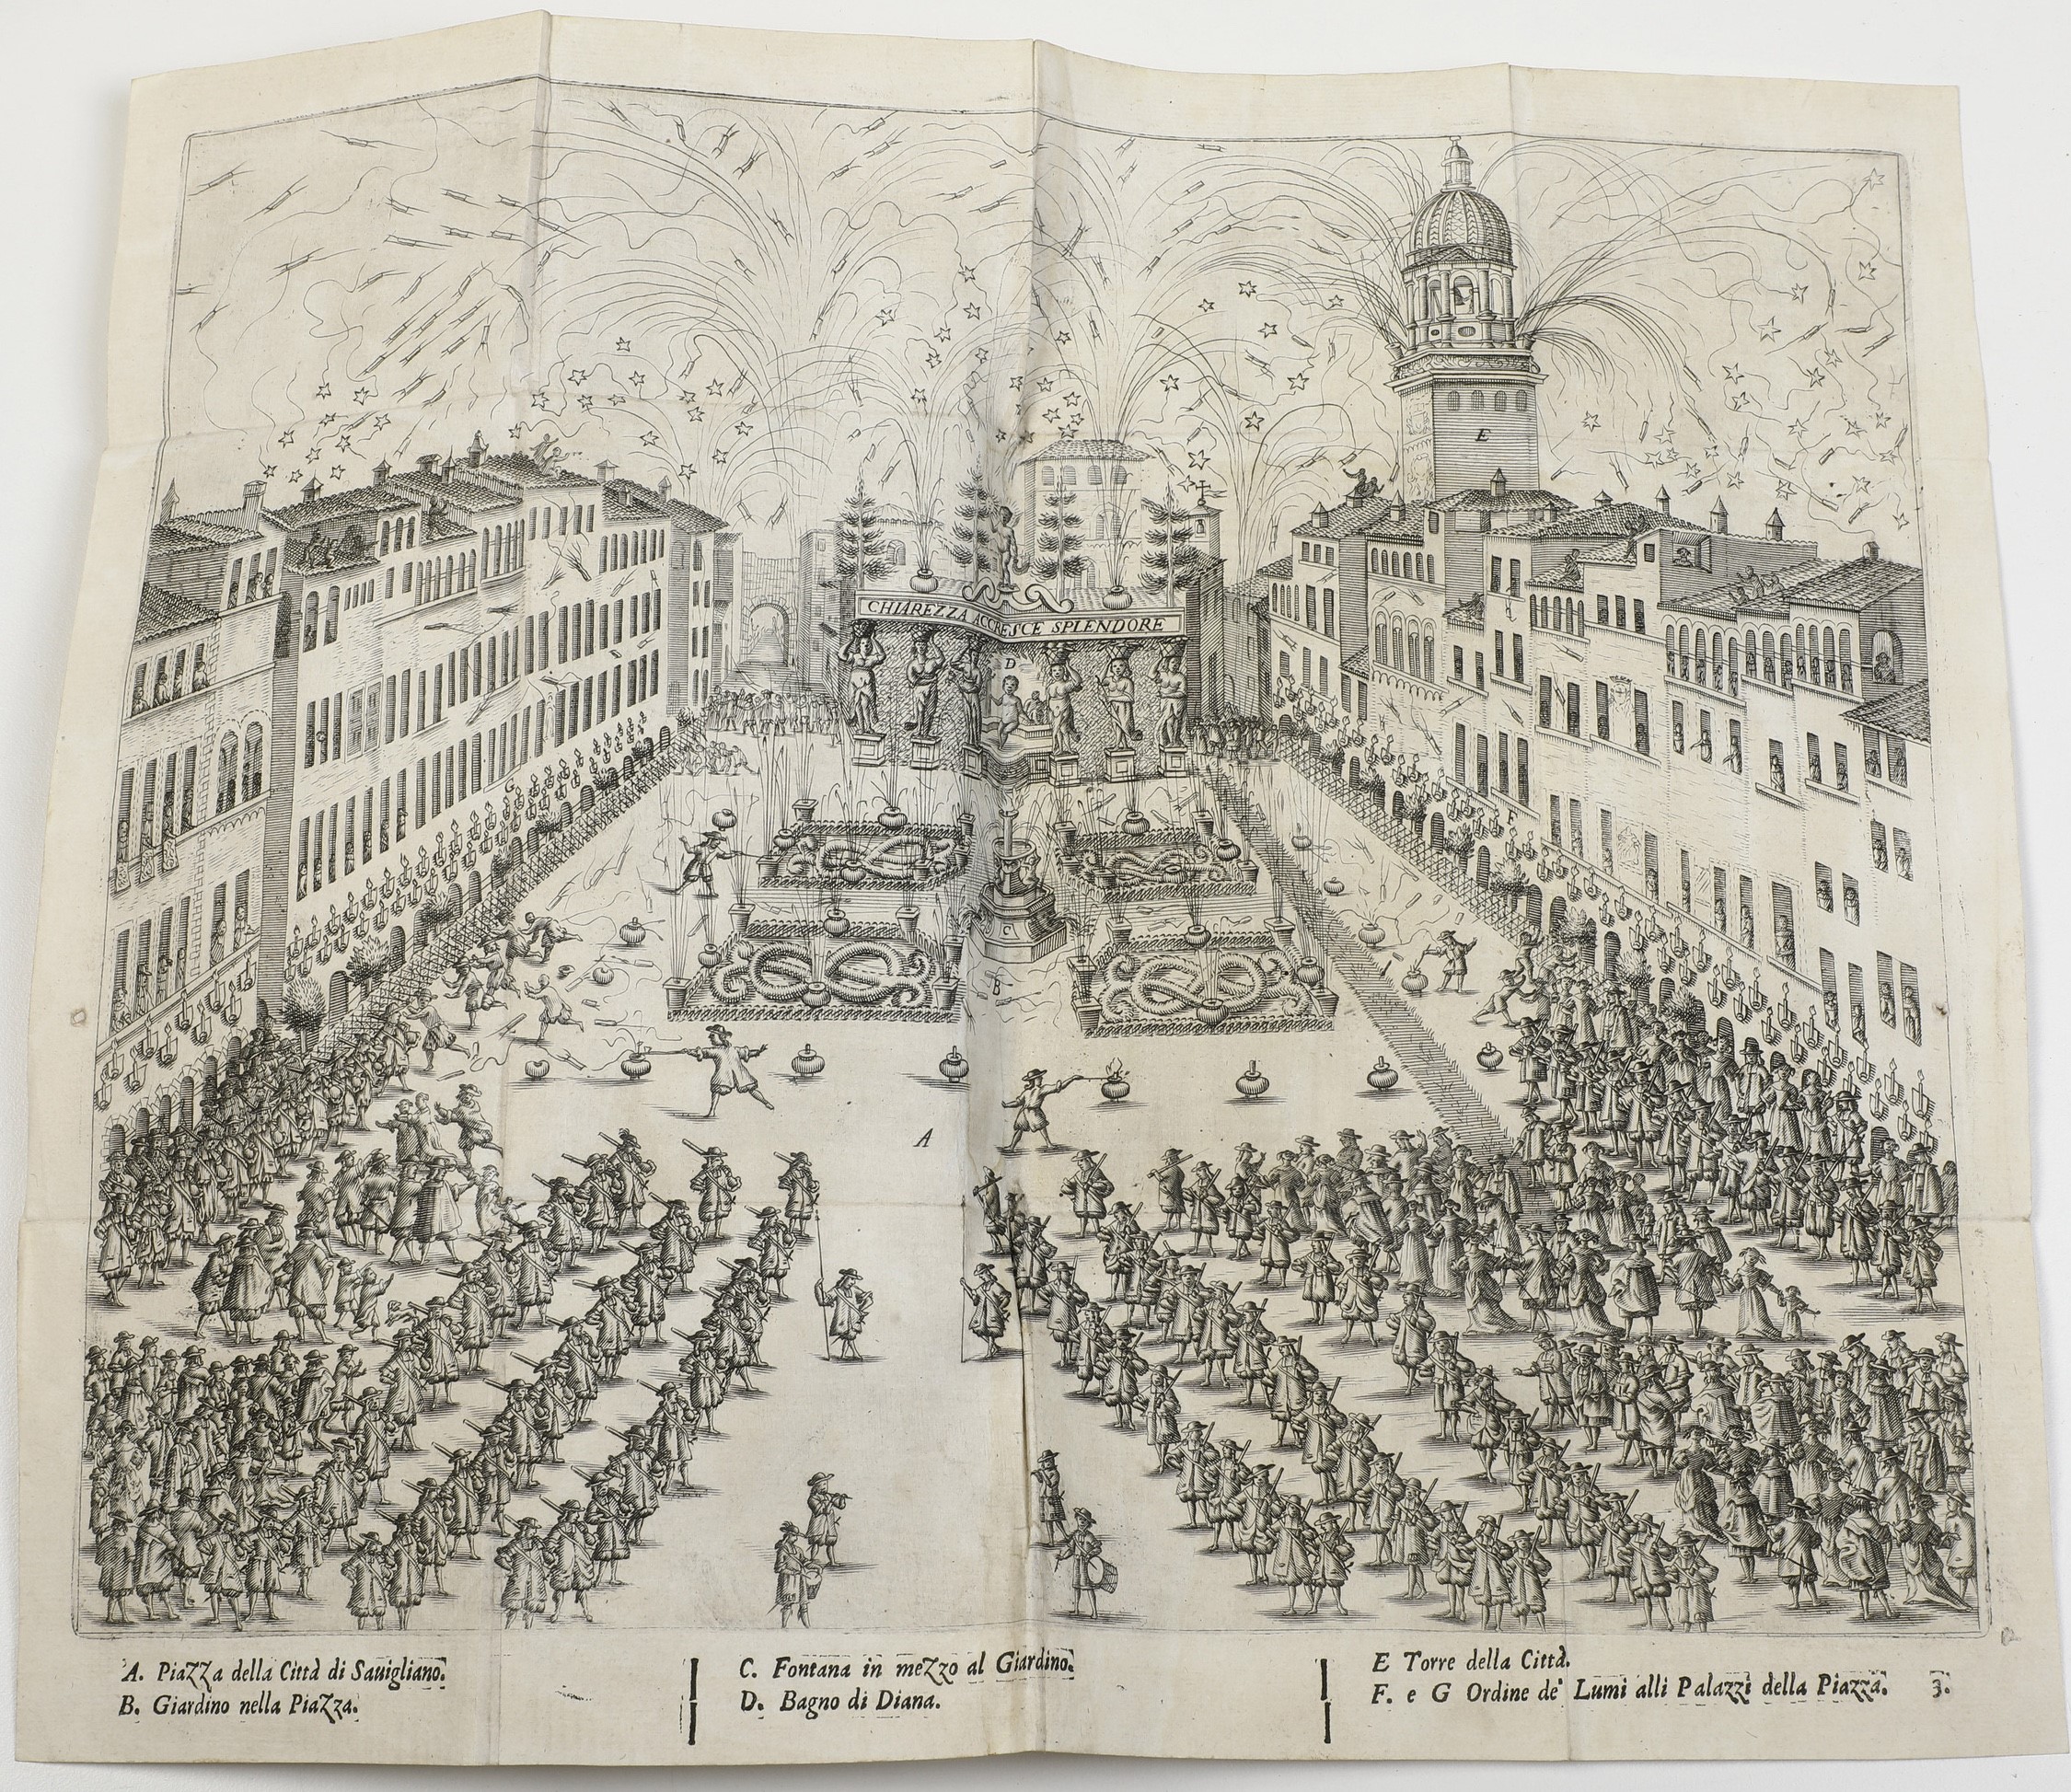 E
CHIAREZZA ACCRESCE SPLENDORE
D
G
F
C
B
A
A. Piazza della Città di Sauigliano.
B. Giardino nella Piazza.
C. Fontana in mezzo al Giardino.
D. Bagno di Diana.
E Torre della Città.
F. e G Ordine de' Lumi alli Palazzi della Piazza. 3.